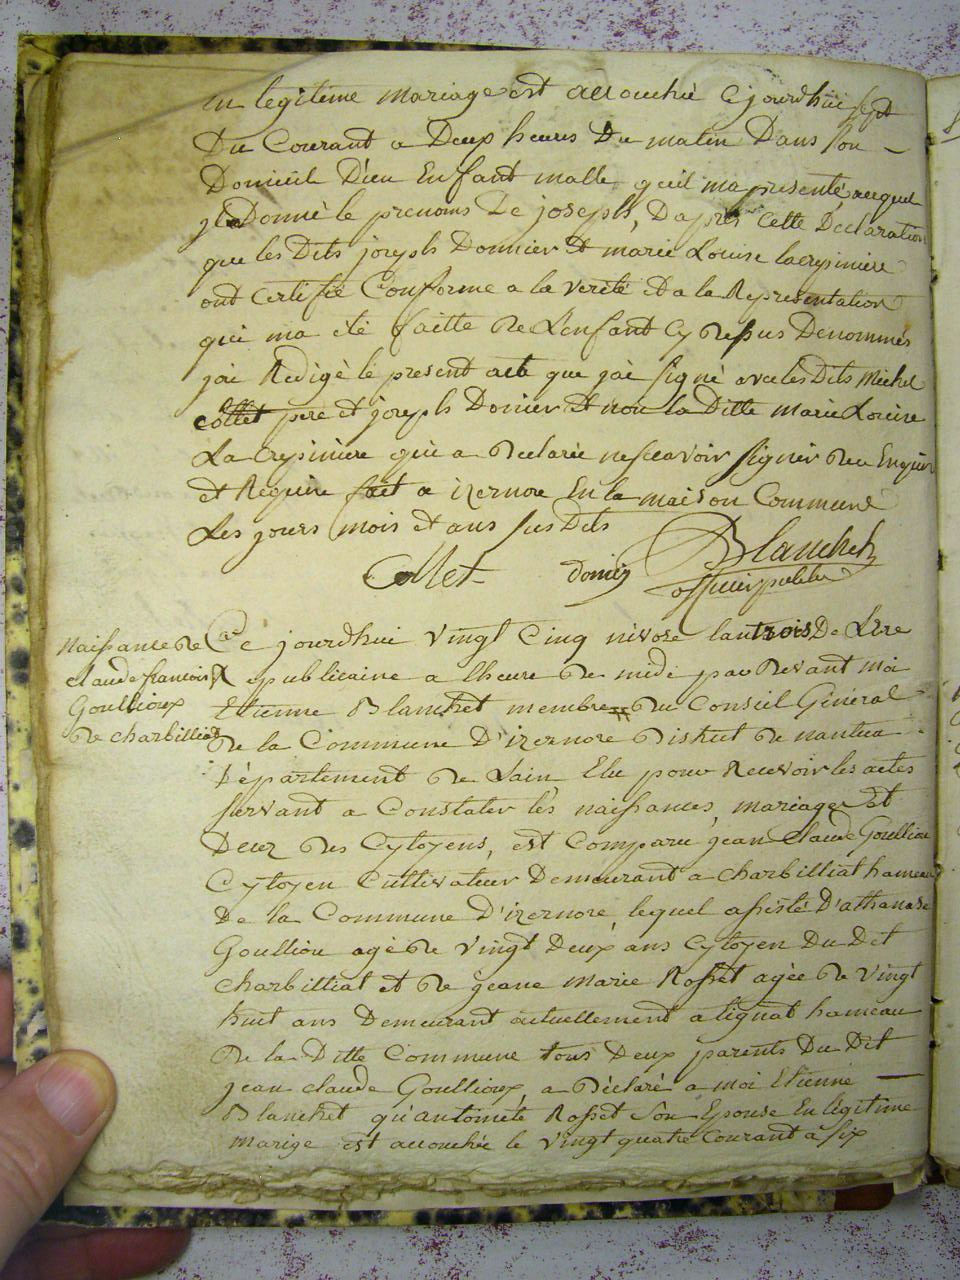 en legitime mariage est accouchée cejourdhui sept
Du Courant a Deux heures Du matin Dans son
Domicile D'un Enfant malle quil ma presenté, auquel
jl a Donné le prenoms De joseph, D'apres cette Declaration
que les Dits joseph Donnier et marie Louise lacrepiniere
ont Certifié Conforme a la verité et a la Representation
qui ma été faitte de L'enfant cy dessus Denommés
jai Redigé le present acte que jai signé avec les Dits Michel
Collet pere et joseph Donier et non la Ditte marie Louise
La Crepiniere qui a declarée ne scavoir signer de ce Enquise
et Requise fait a izernore En la maison Commune
Les jours mois et ans sus Dits
Collet Donier Blanchet
officier public
Naissance de
claude francois
Goullioux
de charbilliat
Ce jourdhui vingt cinq nivose lan trois De L'Ere
Republicaine a lheure de midi par devant moi
Etienne Blanchet membre du Conseil Géneral
de la Commune D'izernore District de nantua
Département de Lain Elu pour Recevoir les actes
servant a Constater les naissances, mariages et
Decez des Cytoyens, est Comparu jean Claude Goulliou
Cytoyen Cultivateur Demeurant a charbilliat hameau
De la Commune D'izernore lequel assisté D'athanase
Goulliou agé de vingt Deux ans Cytoyen Du Dit
charbilliat et de jeane marie Rosset agée de vingt
huit ans Demeurant actuellement a tignat hameau
de la Ditte Commune tous Deux parents Du Dit
jean claude Goullioux, a Déclaré a moi Etienne
Blanchet qu'antoinete Rosset son Epouse En légitime
marige est accouchée le vingt quatre courant a six